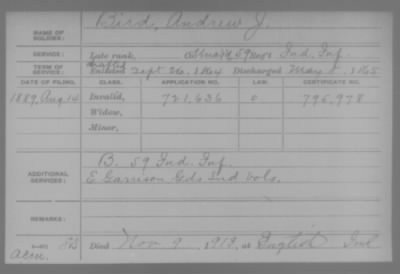 Bird, Andrew J.
NAME OF SOLDIER:
SERVICE: Late rank, 59 Ind. Inf.
TERM OF SERVICE: Drafted Enlisted Sept 26, 1864 Discharged 1865
DATE OF FILING. CLASS. APPLICATION NO. LAW. CERTIFICATE NO.
1889, Aug. 14 Invalid, 721,636 0 795,978
Widow,
Minor,
ADDITIONAL SERVICES: B. 59 Ind. Inf.
E Garrison Gds Ind Vols.
REMARKS:
Died Nov 9, 1918, at English Ind